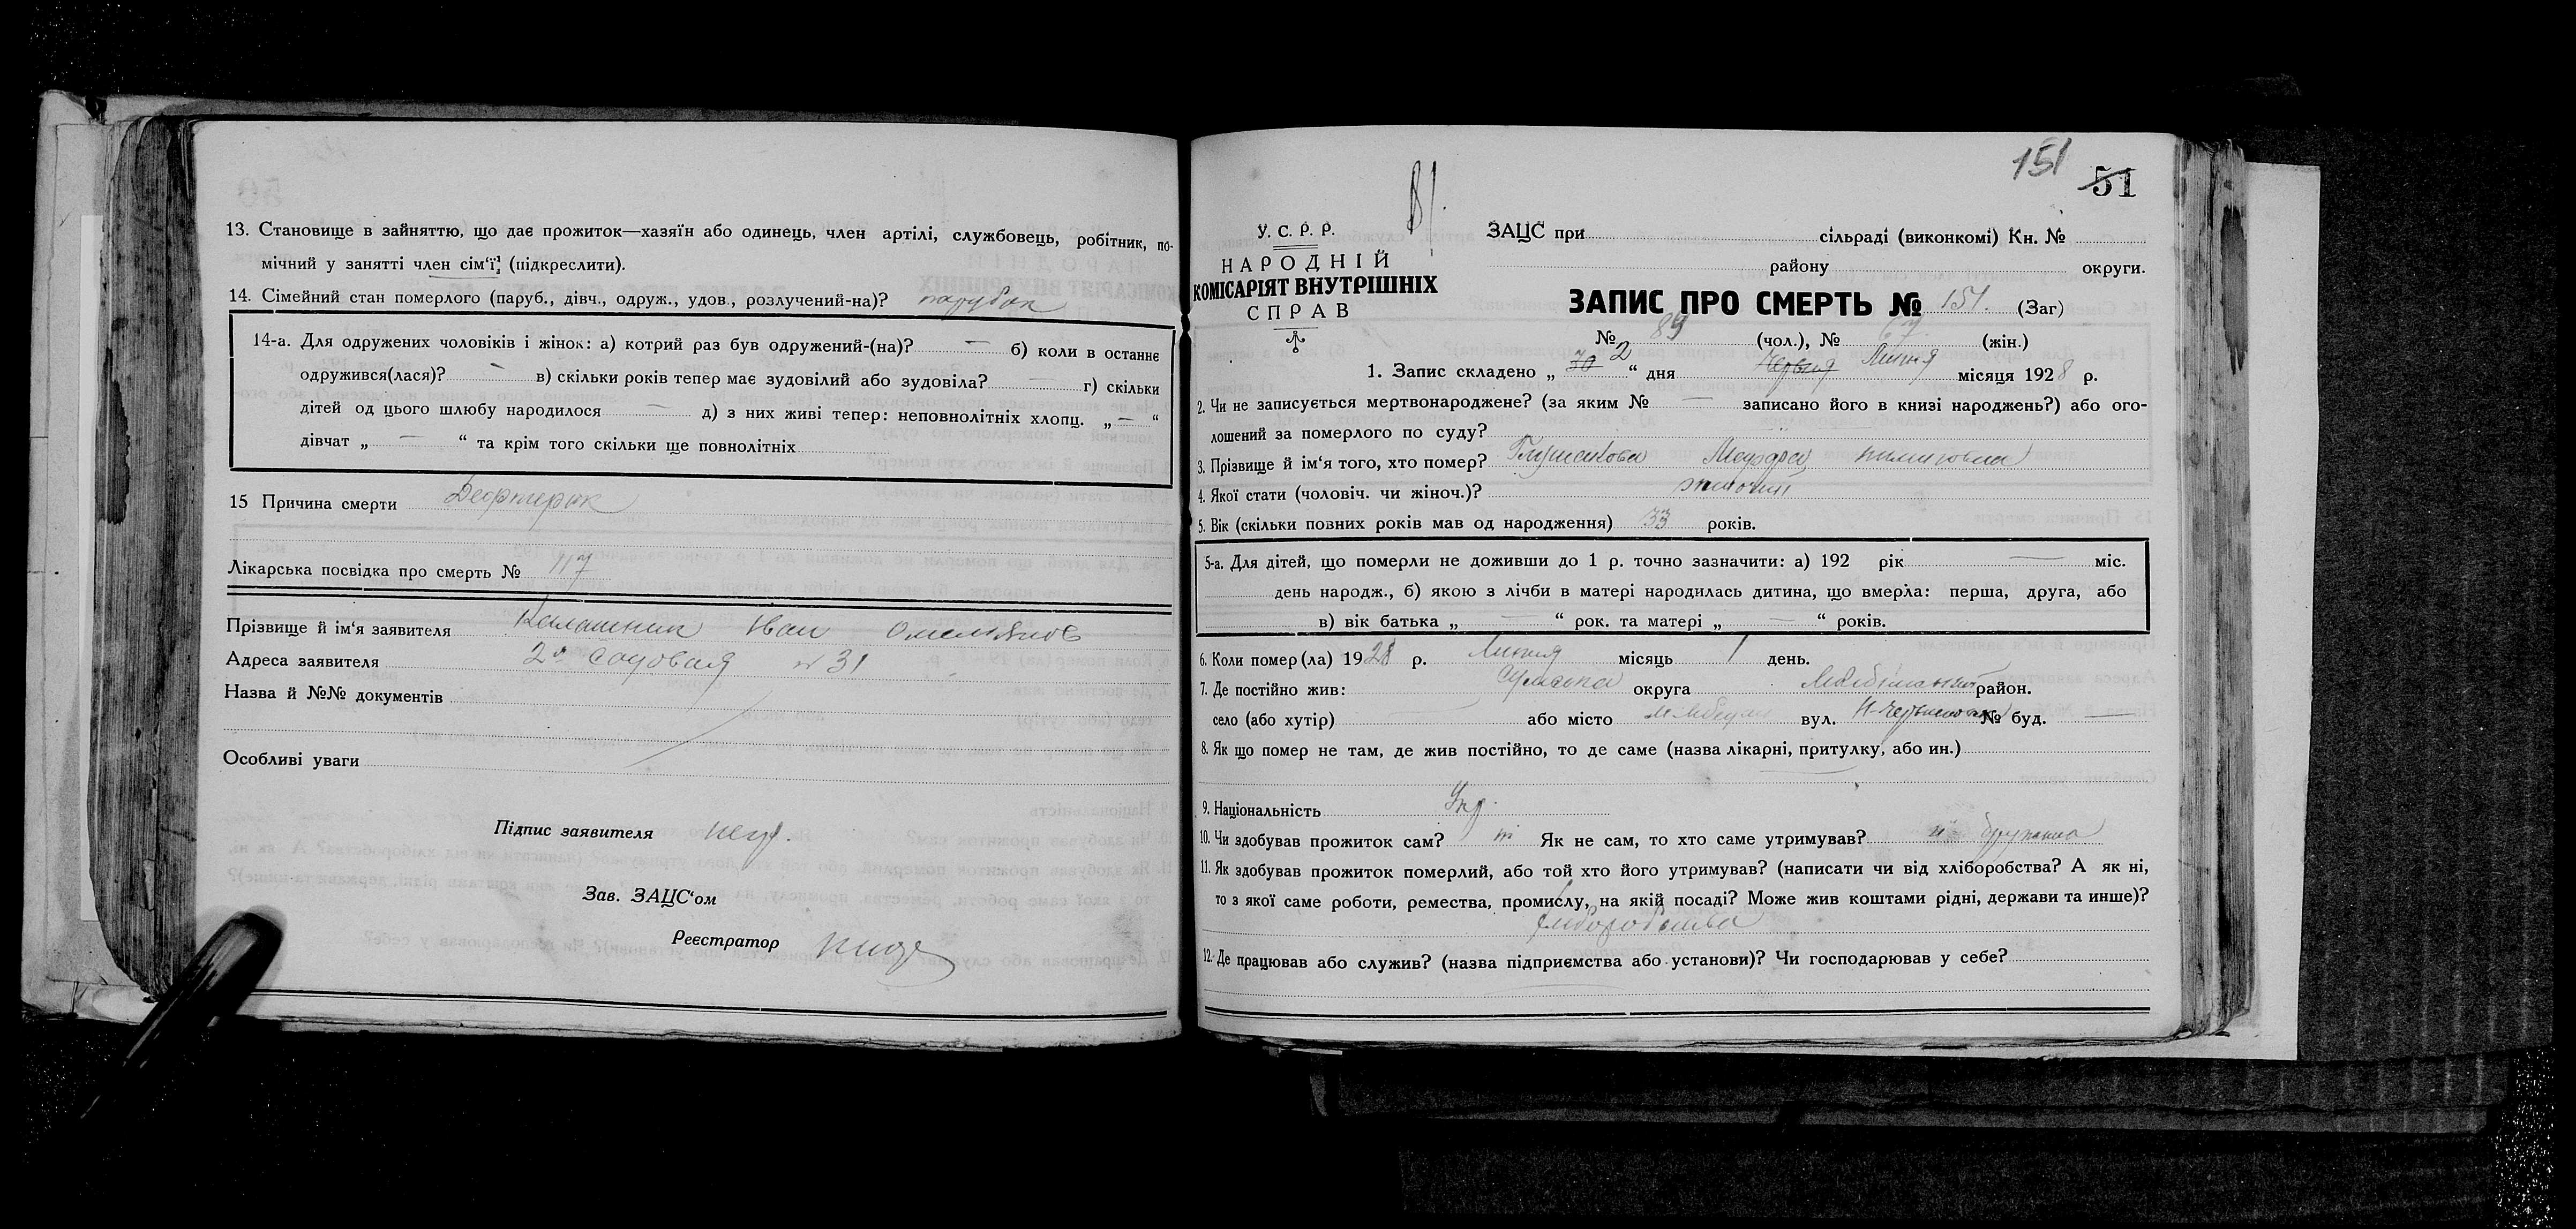 13. Становище в зайняттю, що дає прожиток—хазяїн або одинець, член артілі, службовець, робітник, по-
мічний у занятті член сім‘ї, (підкреслити).
14. Сімейний стан померлого (паруб., дівч., одруж., удов., розлучений-на)? парубок
14-а. Для одружених чоловіків і жінок: а) котрий раз був одружений-(на)? — б) коли в останнє
одружився(лася)? — в) скільки років тепер має зудовілий або зудовіла? — г) скільки
дітей од цього шлюбу народилося — д) з них живі тепер: неповнолітніх хлопц. „ — “
дівчат „ — “ та крім того скільки ще повнолітніх
15 Причина смерти
Лікарська посвідка про смерть № 117
Прізвище й ім‘я заявителя Калашник Іван Омельянов
Адреса заявителя 2я садовая № 31
Назва й №№ документів
Особливі уваги
Підпис заявителя
Зав. ЗАЦС‘ом
Реєстратор
151
51
У. С. Р. Р.
НАРОДНІЙ
КОМІСАРІЯТ ВНУТРІШНІХ
СПРАВ
ЗАЦС при сільраді (виконкомі) Кн. №
району округи.
ЗАПИС ПРО СМЕРТЬ № 151. (Заг)
№ 89 (чол.), № 67 (жін.)
1. Запис складено „ 30 2 “ дня Червня Липня місяця 1928 р.
2. Чи не записується мертвонароджене? (за яким № — записано його в книзі народжень?) або ого-
лошений за померлого по суду?
3. Прізвище й ім‘я того, хто помер?
4. Якої стати (чоловіч. чи жіноч.)? жіночий
5. Вік (скільки повних років мав од народження) 33 років.
5-а. Для дітей, що померли не доживши до 1 р. точно зазначити: а) 192 рік — міс.
день народж., б) якою з лічби в матері народилась дитина, що вмерла: перша, друга, або
в) вік батька „ — “ рок. та матері „ — “ років.
6. Коли помер(ла) 1928 р. Липня місяць 1 день.
7. Де постійно жив: Сумська округа район.
село (або хутір) — або місто вул. № буд. —
8. Як що помер не там, де жив постійно, то де саме (назва лікарні, притулку, або ин.)
9. Національність Укр.
10. Чи здобував прожиток сам? ні Як не сам, то хто саме утримував?
11. Як здобував прожиток померлий, або той хто його утримував? (написати чи від хліборобства? А як ні,
то з якої саме роботи, ремества, промислу, на якій посаді? Може жив коштами рідні, держави та инше)?
хліборобства
12. Де працював або служив? (назва підприємства або установи)? Чи господарював у себе?